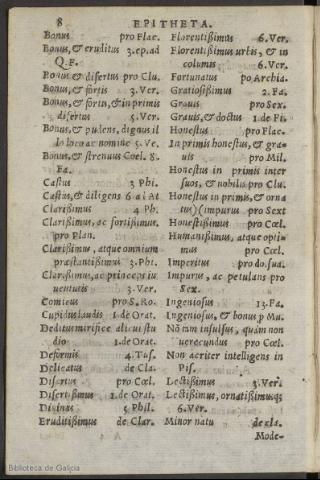 8 EPITHETA.
Bonus pro Flac.
Bonus, & eruditus 3. ep. ad
Q. F.
Bonus & disertus pro Clu.
Bonus, & fortis 3. Ver.
Bonus, & fortis, & in primis
disertus 5. Ver.
Bonus, & pudens, dignus il
lo loco ac nomine 5. Ve.
Bonus, & strenuus Cœl. 8.
Fa.
Castus 3 Phi.
Castus, & diligens 6 ad At
Clarißimus 4 Ph.
Clarißimus, ac fortißimus.
pro Plan.
Clarißimus, atque omnium
præstantißimus 3. Phi.
Clarißimus, ac princeps iu
uentutis 3. Ver.
Comicus pro S. Ro.
Cupidus laudis 1. de Orat.
Deditus mirifice alicui stu
dio 1. de Orat.
Deformis 4. Tus.
Delicatus de Cla.
Disertus pro Cœl.
Disertißimus 1. de Orat.
Diuinus 5 Phil.
Eruditißimus de Clar.
Florentißimus 6. Ver.
Florentißimus urbis, & in
columis 6. Ver.
Fortunatus po Archia.
Gratiosißimus 2. Fa.
Grauis pro Sex.
Grauis, & doctus 1. de Fi.
Honestus pro Flac.
In primis honestus, & gra-
uis pro Mil.
Honestus in primis inter
suos, & nobilis pro Clu.
Honestus in primis, & orna
tus) (impurus pro Sext
Honestißimus pro Cœl.
Humanißimus, atque opti
mus pro Cœl.
Imperitus pro do. sua.
Impurus, ac petulans pro
Sex.
Ingeniosus 13. Fa.
Ingeniosus, & bonus p Mu.
Nõ tam insulsus, quàm non
uerecundus pro Cœl.
Non acriter intelligens in
Pis.
Lectißimus 3. Ver.
Lectißimus, ornatißimusq;
6. Ver.
Minor natu de cla.
Mode-
Biblioteca de Galicia